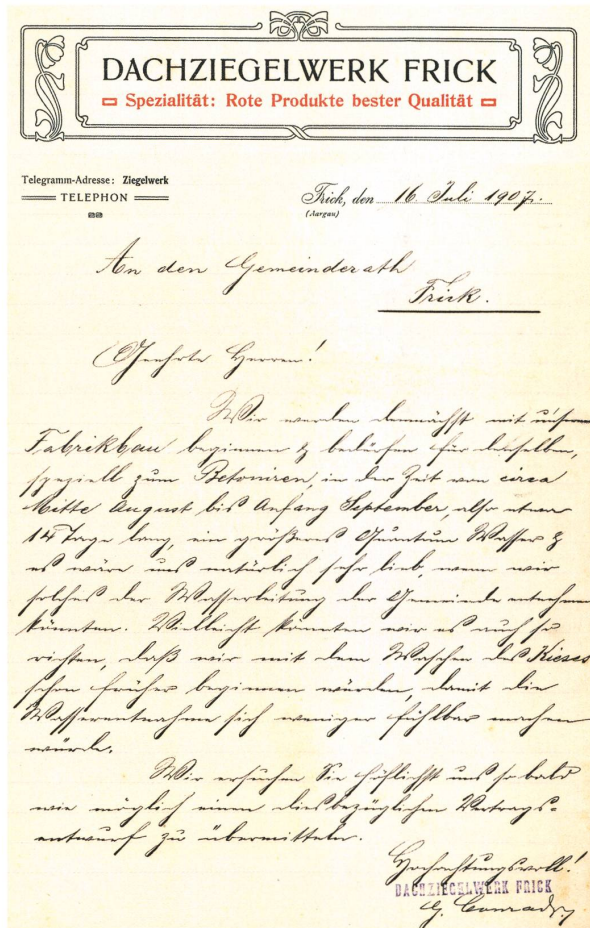 DACHZIEGELWERK FRICK
Spezialität: Rote Produkte bester Qualität
Telegramm-Adresse: Ziegelwerk
TELEPHON
Frick, den 16. Juli 1907.
(Aargau)
An den Gemeinderath
Frick.
Geehrte Herren!
Wir werden demnächst mit unserem
Fabrikbau beginnen & bedürfen für denselben,
speziell zum Betoniren, in der Zeit von circa
Mitte August bis Anfang September, also etwa
14 Tage lang, ein größeres Quantum Wasser &
es wäre uns natürlich sehr lieb, wenn wir
solches der Wasserleitung der Gemeinde entnehmen
könnten. Vielleicht könnten wir es auch so
richten, daß wir mit dem Waschen des Kieses
schon früher beginnen würden, damit die
Wasserentnahme sich weniger fühlbar machen
würde.
Wir ersuchen Sie höflichst uns so bald
wie möglich einen diesbezüglichen Vertrags-
entwurf zu übermitteln.
Hochachtungsvoll!
DACHZIEGELWERK FRICK
G. Conrad